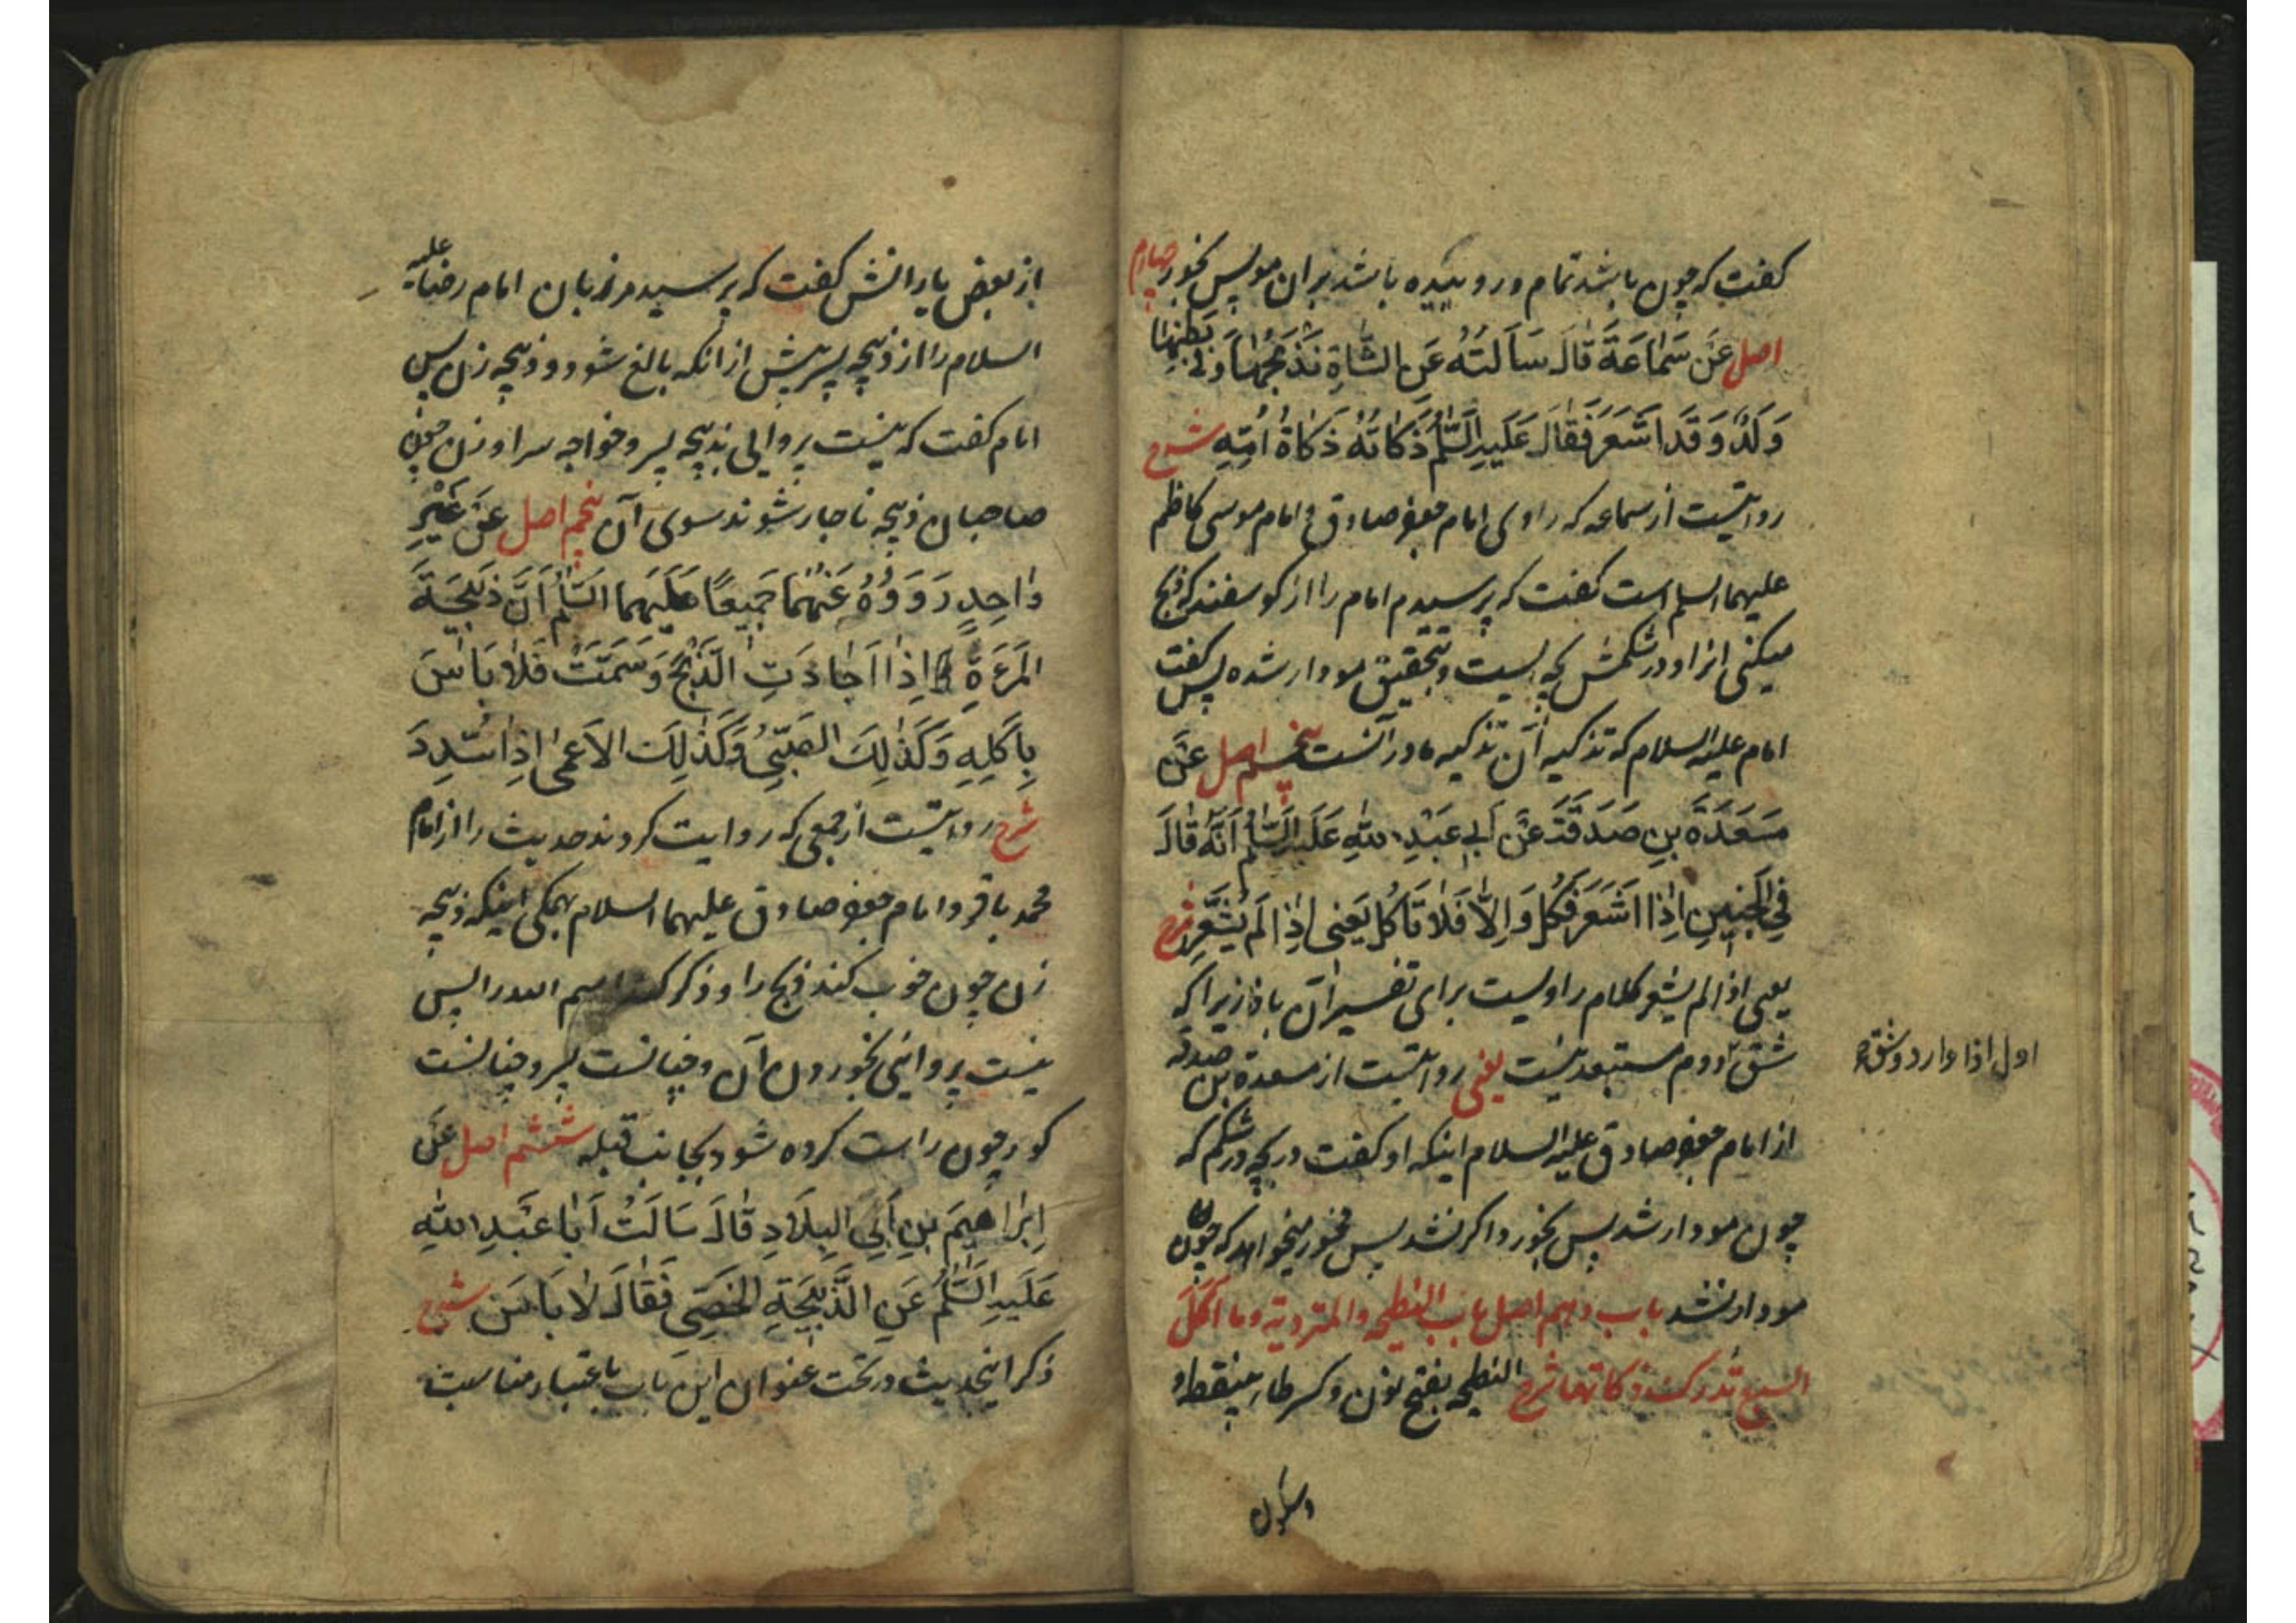 گفت که چون باشد تمام و روییده باشد بر آن مو پس بخور چهارم
اصل عَنْ سَمَاعَةَ قَالَ سَأَلْتُهُ عَنِ الشَّاةِ نَذْبَحُهَا وَفِي بَطْنِهَا
وَلَدٌ وَقَدْ أَشْعَرَ فَقَالَ عَلَيْهِ السَّلَمُ ذَكَاتُهُ ذَكَاةُ أُمِّهِ شرح
روایتست از سماعه که راوی امام جعفر صادق و امام موسی کاظم
علیهما السلم است گفت که پرسیدم امام را از گوسفند که ذبح
میکنی انرا و در شکمش بچه ایست و بتحقیق مودار شده پس گفت
امام علیه السلام که تذکیه آن تذکیه مادر آنست پنجم اصل عَنْ
مَسْعَدَةَ بنِ صَدَقَةَ عَنْ أَبِي عَبْدِ اللهِ عَلَيْهِ السَّلَمُ أَنَّهُ قَالَ
فِي الْجَنِينِ إِذَا أَشْعَرَ فَكُلْ وَإِلَّا فَلَا تَأْكُلْ يَعْنِي إِذَا لَمْ يُشْعِرْ شرح
یعنی اذا لم یشعر کلام راویست برای تفسیر ان باذا زیرا که
شق دوم مستبعد نیست یعنی روایتست از مسعدة بن صدقه
اول اذا دارد و شق
از امام جعفر صادق علیه السلام اینکه او گفت در بچه در شکم که
چون مودار شد پس بخور و اگر نشد پس مخور میخواهد که چون
مودار نشد باب دهم اصل باب النطیحه والمتردیة وما اکل
السبع تدرک ذکاتها شرح النطیحه بفتح نون و کسر طاء بینقطه و
وسکون
از بعض یارانش گفت که پرسید مرزبان امام رضا علیه
السلام را از ذبیحه پسر پیش از انکه بالغ شود و ذبیحه زن پس
امام گفت که نیست پروایی بذبیحه پسر و خواجه سرا و زن چون
صاحبان ذبیحه ناچار شوند سوی آن پنجم اصل عَنْ غَيْرِ
وَاحِدٍ رَوَوْهُ عَنْهُمَا جَمِيعًا عَلَيْهِمَا السَّلَمُ أَنَّ ذَبِيحَةَ
المَرْءَةِ إِذَا أَجَادَتِ الذَّبْحَ وَسَمَّتْ فَلَا بَأْسَ
بِأَكْلِهِ وَكَذَلِكَ الصَّبِيُّ وَكَذَلِكَ الأَعْمَى إِذَا سُدِّدَ
شرح روایتست از جمعی که روایت کردند حدیث را از امام
محمد باقر و امام جعفر صادق علیهما السلام همگی اینکه ذبیحه
زن چون خوب کند ذبح را و ذکر کند اسم الله را پس
نیست پروایی بخوردن آن و چنانست پسر و چنانست
کور چون راست کرده شود بجانب قبله ششم اصل عَنْ
إِبْرَاهِيمَ بنِ أَبِي البِلَادِ قَالَ سَأَلْتُ أَبَا عَبْدِ اللهِ
عَلَيْهِ السَّلَمُ عَنِ الذَّبِيحَةِ الخَصِيِّ فَقَالَ لَا بَأْسَ شرح
ذکر اینحدیث در تحت عنوان این باب باعتبار مناسبت